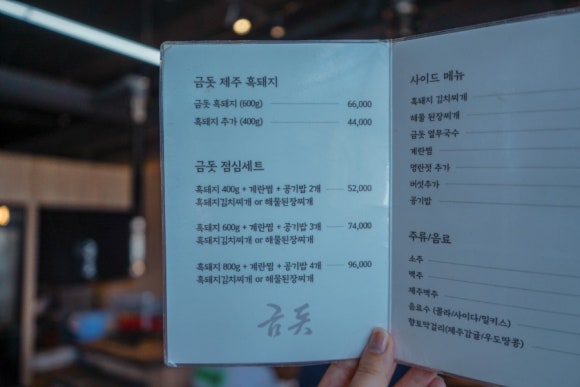 금돗 제주 흑돼지
금돗 흑돼지 (600g) 66,000
흑돼지 추가 (400g) 44,000
금돗 점심세트
흑돼지 400g + 계란찜 + 공기밥 2개 52,000
흑돼지김치찌개 or 해물된장찌개
흑돼지 600g + 계란찜 + 공기밥 3개 74,000
흑돼지김치찌개 or 해물된장찌개
흑돼지 800g + 계란찜 + 공기밥 4개 96,000
흑돼지김치찌개 or 해물된장찌개
금돗
사이드 메뉴
흑돼지 김치찌개
해물 된장찌개
금돗 열무국수
계란찜
명란젓 추가
버섯추가
공기밥
주류/음료
소주
맥주
제주맥주
음료수 (콜라/사이다/밀키스)
향토막걸리(제주감귤/우도땅콩)